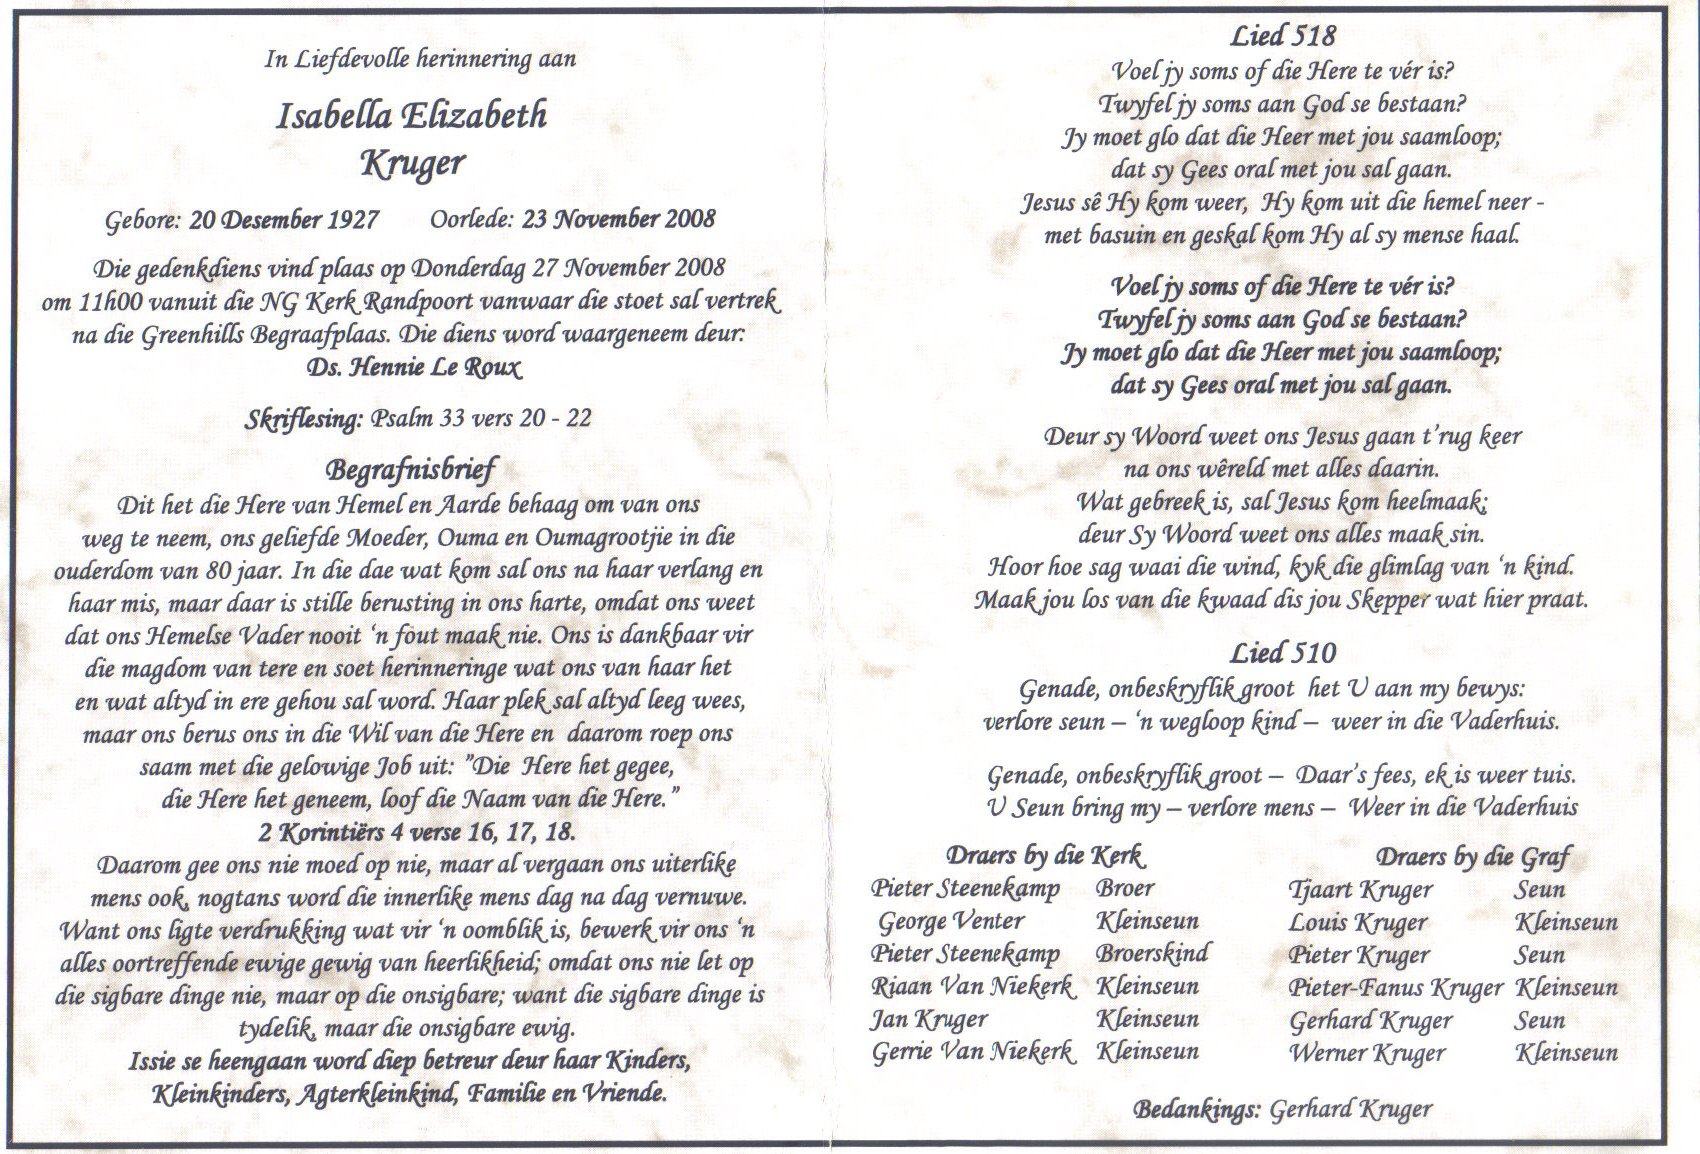 In Liefdevolle herinnering aan
Isabella Elizabeth
Kruger
Gebore: 20 Desember 1927 Oorlede: 23 November 2008
Die gedenkdiens vind plaas op Donderdag 27 November 2008
om 11h00 vanuit die NG Kerk Randpoort vanwaar die stoet sal vertrek
na die Greenhills Begraafplaas. Die diens word waargeneem deur:
Ds. Hennie Le Roux
Skriflesing: Psalm 33 vers 20 - 22
Begrafnisbrief
Dit het die Here van Hemel en Aarde behaag om van ons
weg te neem, ons geliefde Moeder, Ouma en Oumagrootjie in die
ouderdom van 80 jaar. In die dae wat kom sal ons na haar verlang en
haar mis, maar daar is stille berusting in ons harte, omdat ons weet
dat ons Hemelse Vader nooit ‘n fout maak nie. Ons is dankbaar vir
die magdom van tere en soet herinneringe wat ons van haar het
en wat altyd in ere gehou sal word. Haar plek sal altyd leeg wees,
maar ons berus ons in die Wil van die Here en daarom roep ons
saam met die gelowige Job uit: ”Die Here het gegee,
die Here het geneem, loof die Naam van die Here.”
2 Korintiërs 4 verse 16, 17, 18.
Daarom gee ons nie moed op nie, maar al vergaan ons uiterlike
mens ook, nogtans word die innerlike mens dag na dag vernuwe.
Want ons ligte verdrukking wat vir ‘n oomblik is, bewerk vir ons ‘n
alles oortreffende ewige gewig van heerlikheid; omdat ons nie let op
die sigbare dinge nie, maar op die onsigbare; want die sigbare dinge is
tydelik, maar die onsigbare ewig.
Issie se heengaan word diep betreur deur haar Kinders,
Kleinkinders, Agterkleinkind, Familie en Vriende.
Lied 518
Voel jy soms of die Here te vér is?
Twyfel jy soms aan God se bestaan?
Jy moet glo dat die Heer met jou saamloop;
dat sy Gees oral met jou sal gaan.
Jesus sê Hy kom weer, Hy kom uit die hemel neer -
met basuin en geskal kom Hy al sy mense haal.
Voel jy soms of die Here te vér is?
Twyfel jy soms aan God se bestaan?
Jy moet glo dat die Heer met jou saamloop;
dat sy Gees oral met jou sal gaan.
Deur sy Woord weet ons Jesus gaan t’rug keer
na ons wêreld met alles daarin.
Wat gebreek is, sal Jesus kom heelmaak;
deur Sy Woord weet ons alles maak sin.
Hoor hoe sag waai die wind, kyk die glimlag van ‘n kind.
Maak jou los van die kwaad dis jou Skepper wat hier praat.
Lied 510
Genade, onbeskryflik groot het U aan my bewys:
verlore seun – ‘n wegloop kind – weer in die Vaderhuis.
Genade, onbeskryflik groot – Daar’s fees, ek is weer tuis.
U Seun bring my – verlore mens – Weer in die Vaderhuis
Draers by die Kerk
Pieter Steenekamp Broer
George Venter Kleinseun
Pieter Steenekamp Broerskind
Riaan Van Niekerk Kleinseun
Jan Kruger Kleinseun
Gerrie Van Niekerk Kleinseun
Draers by die Graf
Tjaart Kruger Seun
Louis Kruger Kleinseun
Pieter Kruger Seun
Pieter-Fanus Kruger Kleinseun
Gerhard Kruger Seun
Werner Kruger Kleinseun
Bedankings: Gerhard Kruger